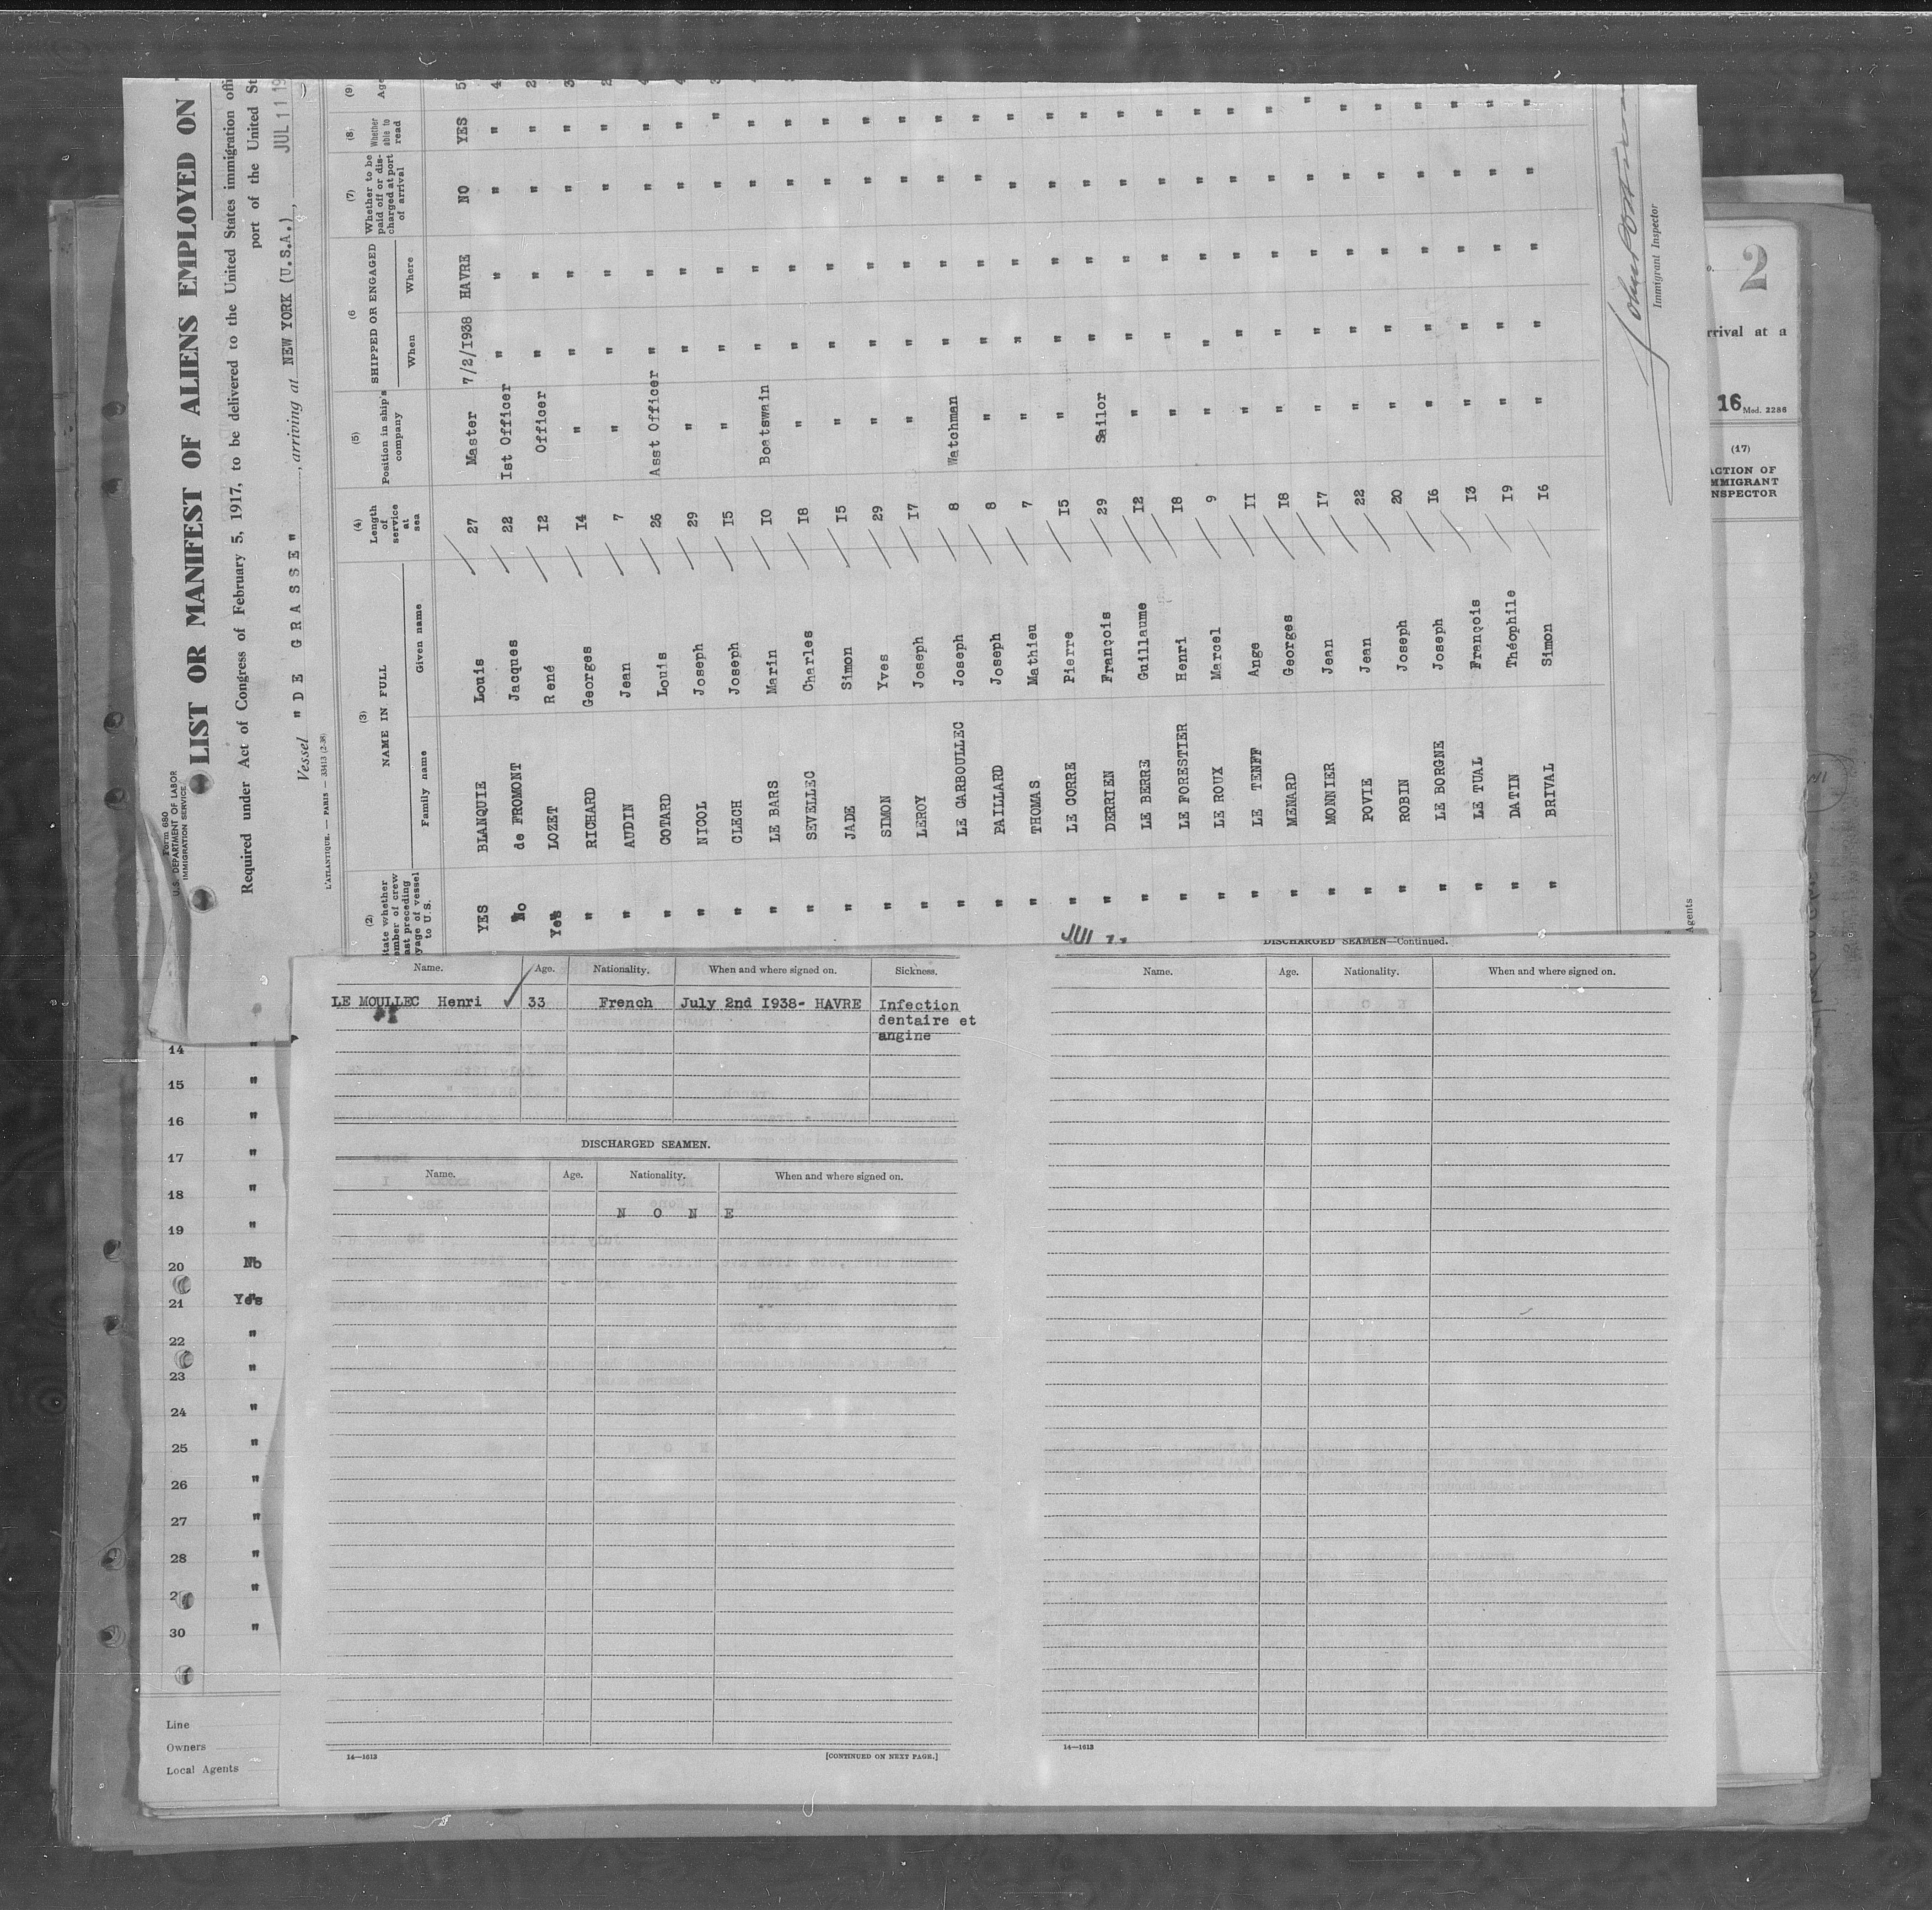 Form 680
U.S. DEPARTMENT OF LABOR
IMMIGRATION SERVICE
LIST OR MANIFEST OF ALIENS EMPLOYED ON
Required under Act of Congress of February 5, 1917, to be delivered to the United States immigration
port of the United
Vessel "DE GRASSE", arriving at NEW YORK (U.S.A.), JUL 11 19
L'ATLANTIQUE. — PARIS — 33413 (2-38)
(2) (3) NAME IN FULL (4) Length of service at sea (5) Position in ship's company (6 SHIPPED OR ENGAGED (7) Whether to be paid off or discharged at port of arrival (8) Whether able to read (9)
to U.S. Family name Given name When Where
YES BLANQUIE Louis 27 Master 7/2/1938 HAVRE NO YES 5
No de FROMONT Jacques 22 Ist Officer " " " " 4
Yes LOZET René I2 Officer " " " " 2
" RICHARD Georges I4 " " " " " 3
" AUDIN Jean 7 " " " " " 2
" COTARD Louis 26 Asst Officer " " " " 4
" NICOL Joseph 29 " " " " " 4
" CLECH Joseph I5 " " " " " 3
" LE BARS Marin IO Boatswain " " " "
" SEVELLEC Charles I8 " " " " "
" JADE Simon I5 " " " " "
" SIMON Yves 29 " " " " "
" LEROY Joseph I7 " " " " "
" LE GARBOULLEC Joseph 8 Watchman " " " "
" PAILLARD Joseph 8 " " " " "
" THOMAS Mathieu 7 " " " " "
" LE CORRE Pierre I5 " " " " "
" DERRIEN François 29 Sailor " " " "
" LE BERRE Guillaume I2 " " " " "
" LE FORESTIER Henri I8 " " " " "
" LE ROUX Marcel 9 " " " " "
" LE TENFF Ange II " " " " "
" MENARD Georges I8 " " " " "
" MONNIER Jean I7 " " " " "
" POVIE Jean 22 " " " " "
" ROBIN Joseph 20 " " " " "
" LE BORGNE Joseph I6 " " " " "
" LE TUAL François I3 " " " " "
" DATIN Théophile I9 " " " " "
" BRIVAL Simon I6 " " " " "
Immigrant Inspector
Agents
2
rrival at a
16 Mod. 2286
(17)
ACTION OF
IMMIGRANT
INSPECTOR
Name. Age. Nationality. When and where signed on. Sickness.
LE MOULLEC Henri 33 French July 2nd I938- HAVRE Infection
dentaire et
angine
DISCHARGED SEAMEN.
Name. Age. Nationality. When and where signed on.
N O N E
14—1613 [CONTINUED ON NEXT PAGE.]
DISCHARGED SEAMEN—Continued.
Name. Age. Nationality. When and where signed on.
14—1613
14 "
15 "
16 "
17 "
18 "
19 "
20 No
21 Yes
22 "
23 "
24 "
25 "
26 "
27 "
28 "
2 "
30 "
Line
Owners
Local Agents